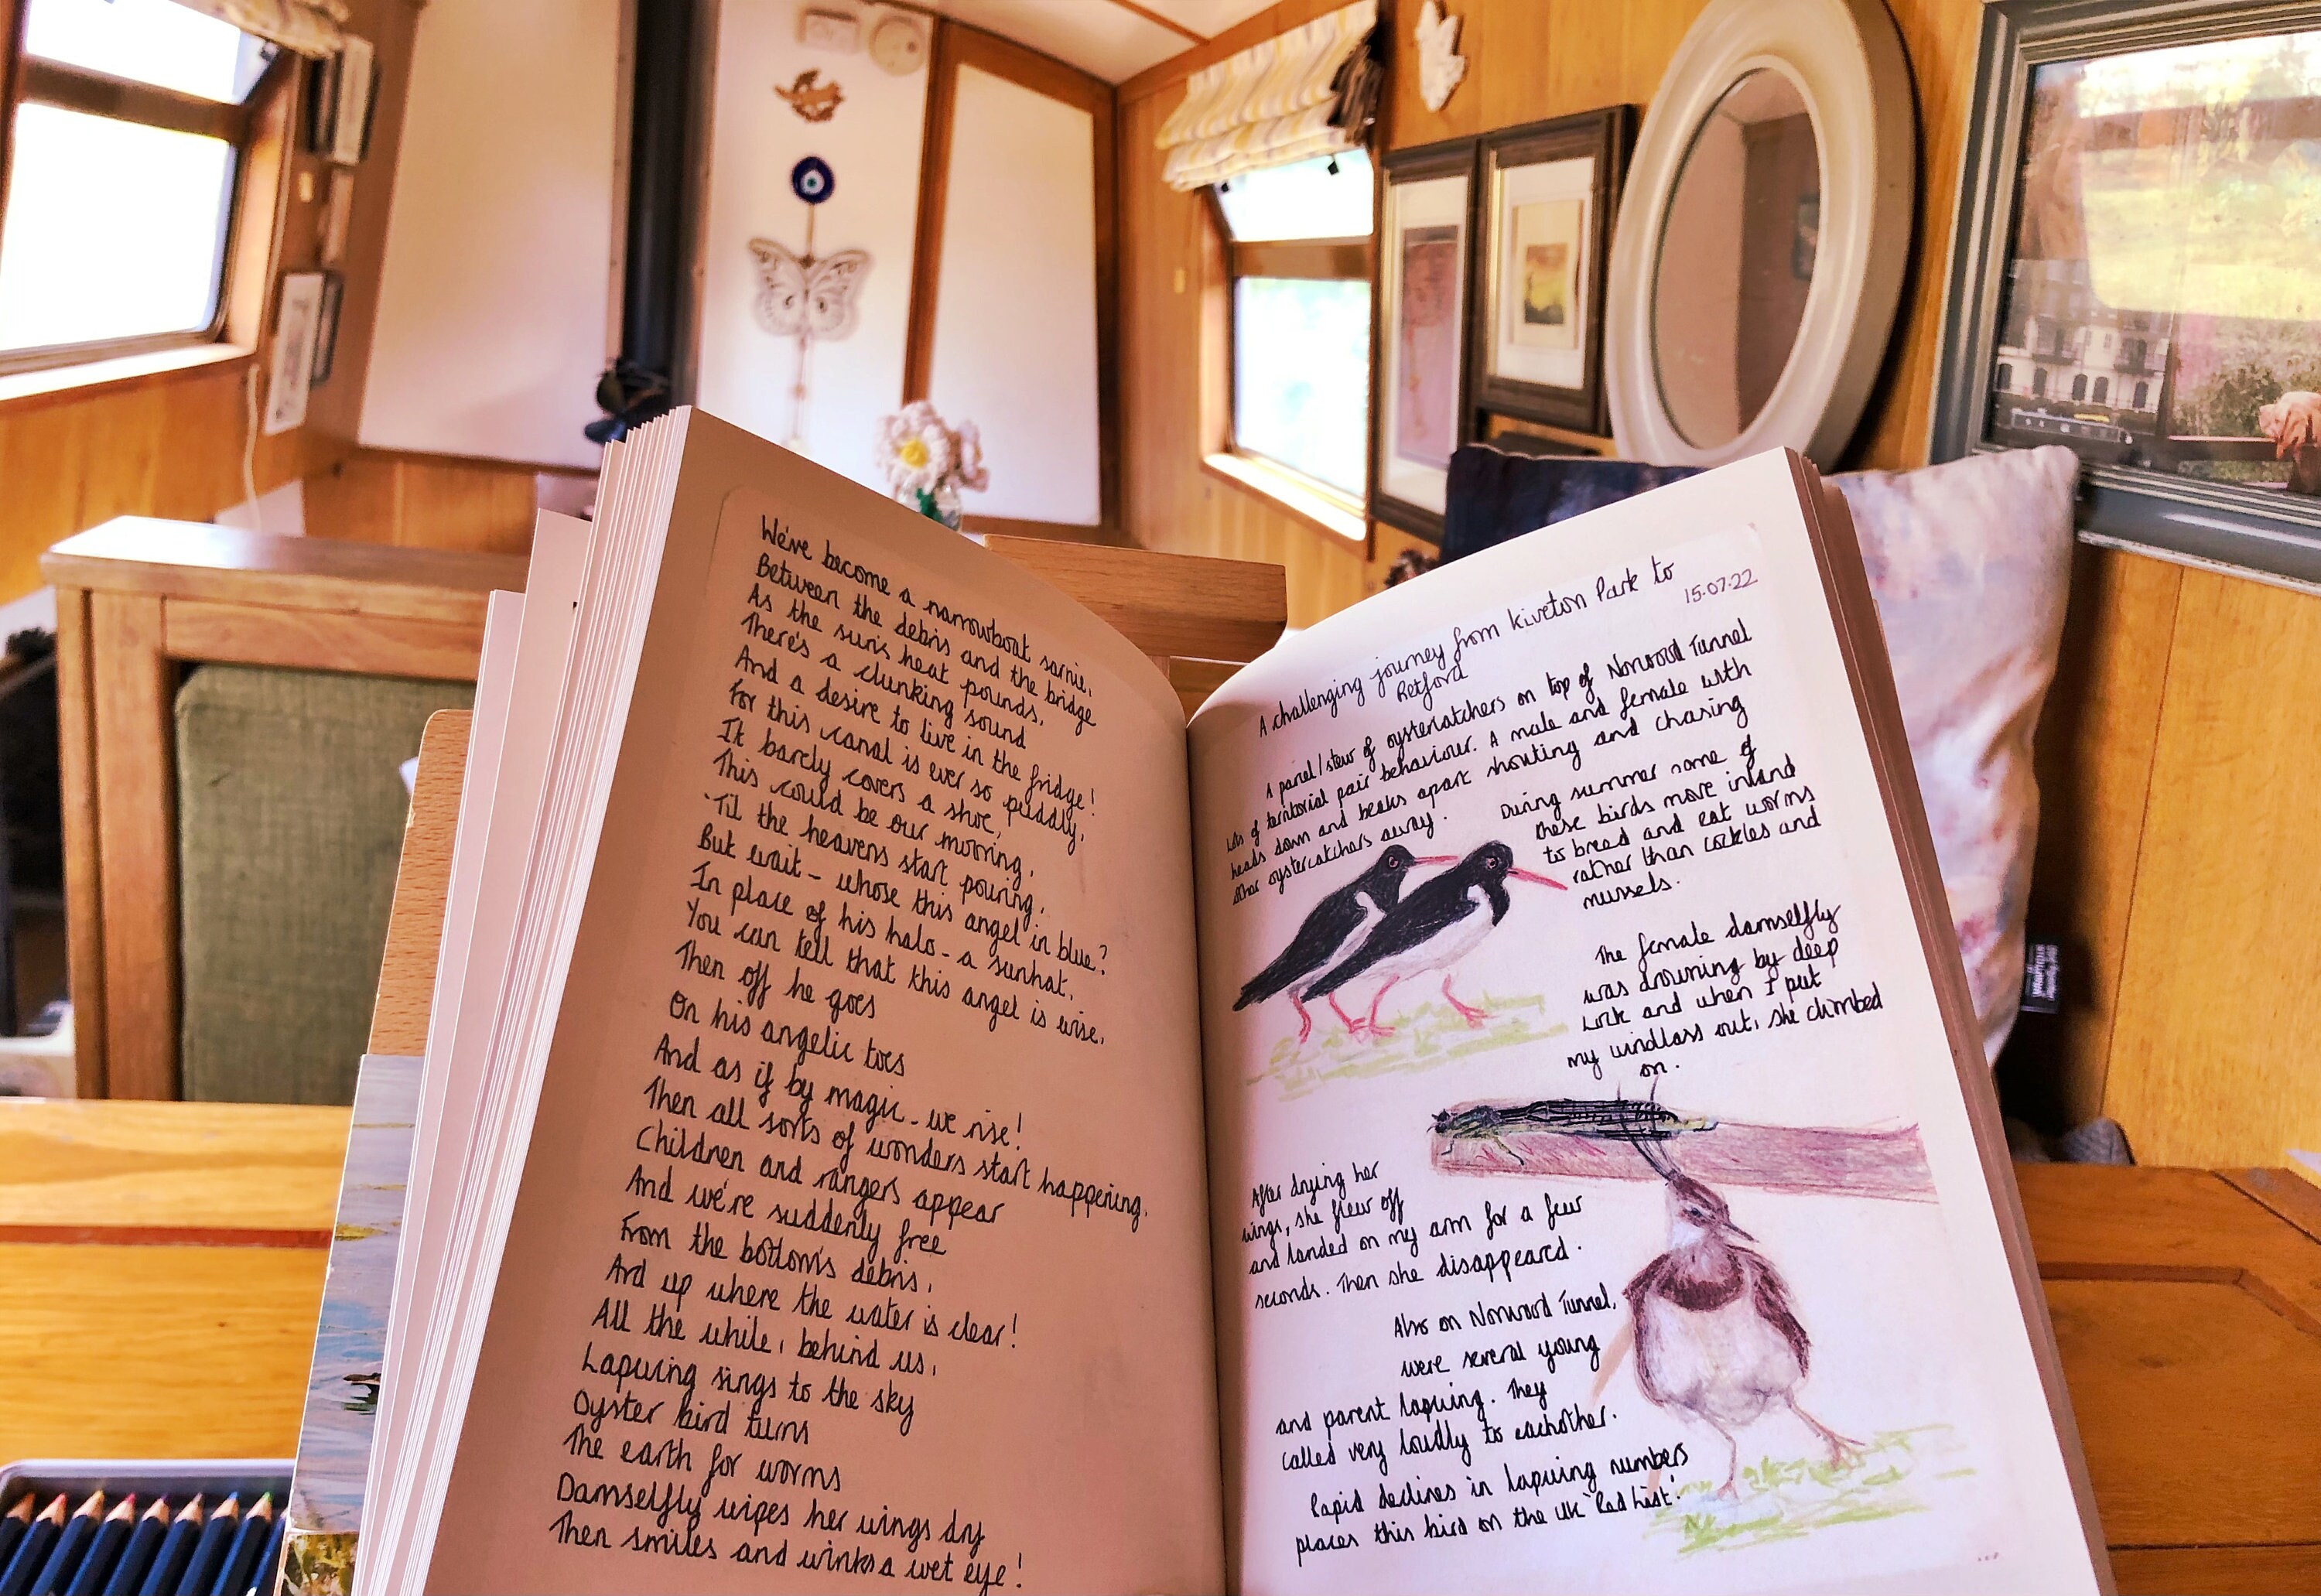 We've become a narrowboat sarnie,
Between the debris and the bridge
As the sun's heat pounds,
There's a clunking sound
And a desire to live in the fridge!
For this canal is ever so puddly,
It barely covers a shoe,
This could be our mooring,
'Til the heavens start pouring,
But wait - whose this angel in blue?
In place of his halo - a sunhat,
You can tell that this angel is wise,
Then off he goes
On his angelic toes
And as if by magic - we rise!
Then all sorts of wonders start happening,
Children and rangers appear
And we're suddenly free
From the bottom's debris,
And up where the water is clear!
All the while, behind us,
Lapwing sings to the sky
Oyster bird turns
The earth for worms
Damselfly wipes her wings dry
Then smiles and winks a wet eye!
A challenging journey from Kiveton Park to
Retford
15.07.22
A parcel/stew of oystercatchers on top of Norwood Tunnel
Lots of territorial pair behaviour. A male and female with
heads down and beaks apart shouting and chasing
other oystercatchers away.
During summer some of
these birds move inland
to breed and eat worms
rather than cockles and
mussels.
The female damselfly
was drowning by deep
lock and when I put
my windlass out, she climbed
on.
After drying her
wings, she flew off
and landed on my arm for a few
seconds. Then she disappeared.
Also on Norwood Tunnel,
were several young
and parent lapwing. They
called very loudly to eachother.
Rapid declines in lapwing numbers
places this bird on the UK 'Red List'.
...